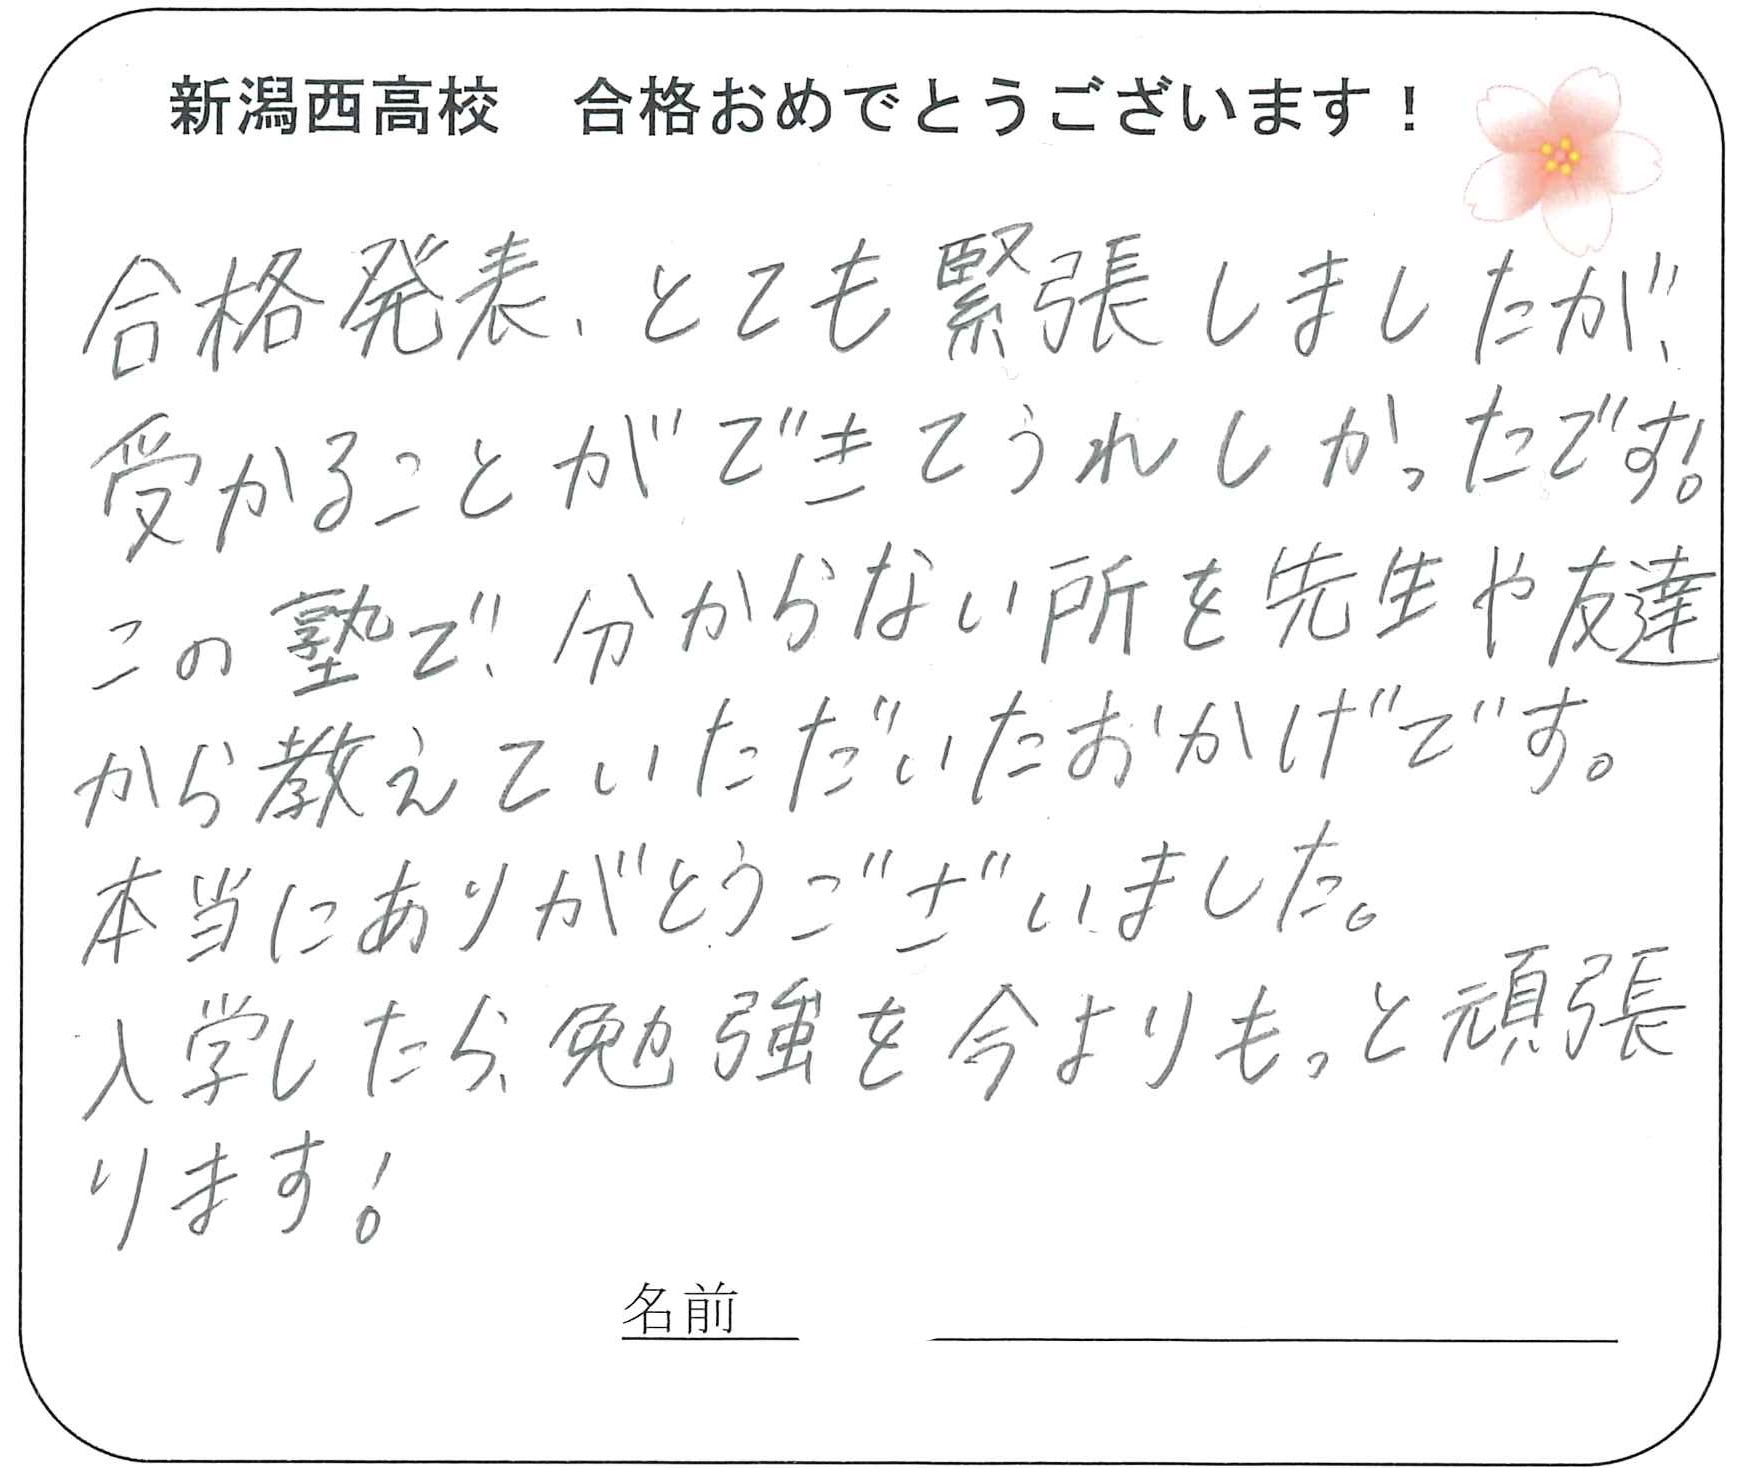 新潟西高校　合格おめでとうございます！
合格発表、とても緊張しましたが、
受かることができてうれしかったです!
この塾で、分からない所を先生や友達
から教えていただいたおかげです。
本当にありがとうございました。
入学したら、勉強を今よりもっと頑張
ります!
名前